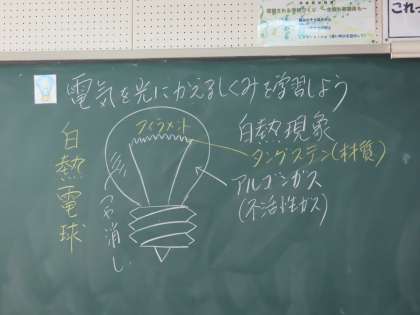 電気を光にかえるしくみを学習しよう
白熱電球
フィラメント
白熱現象
タングステン(材質)
アルゴンガス
(不活性ガス)
つや消し
これっ